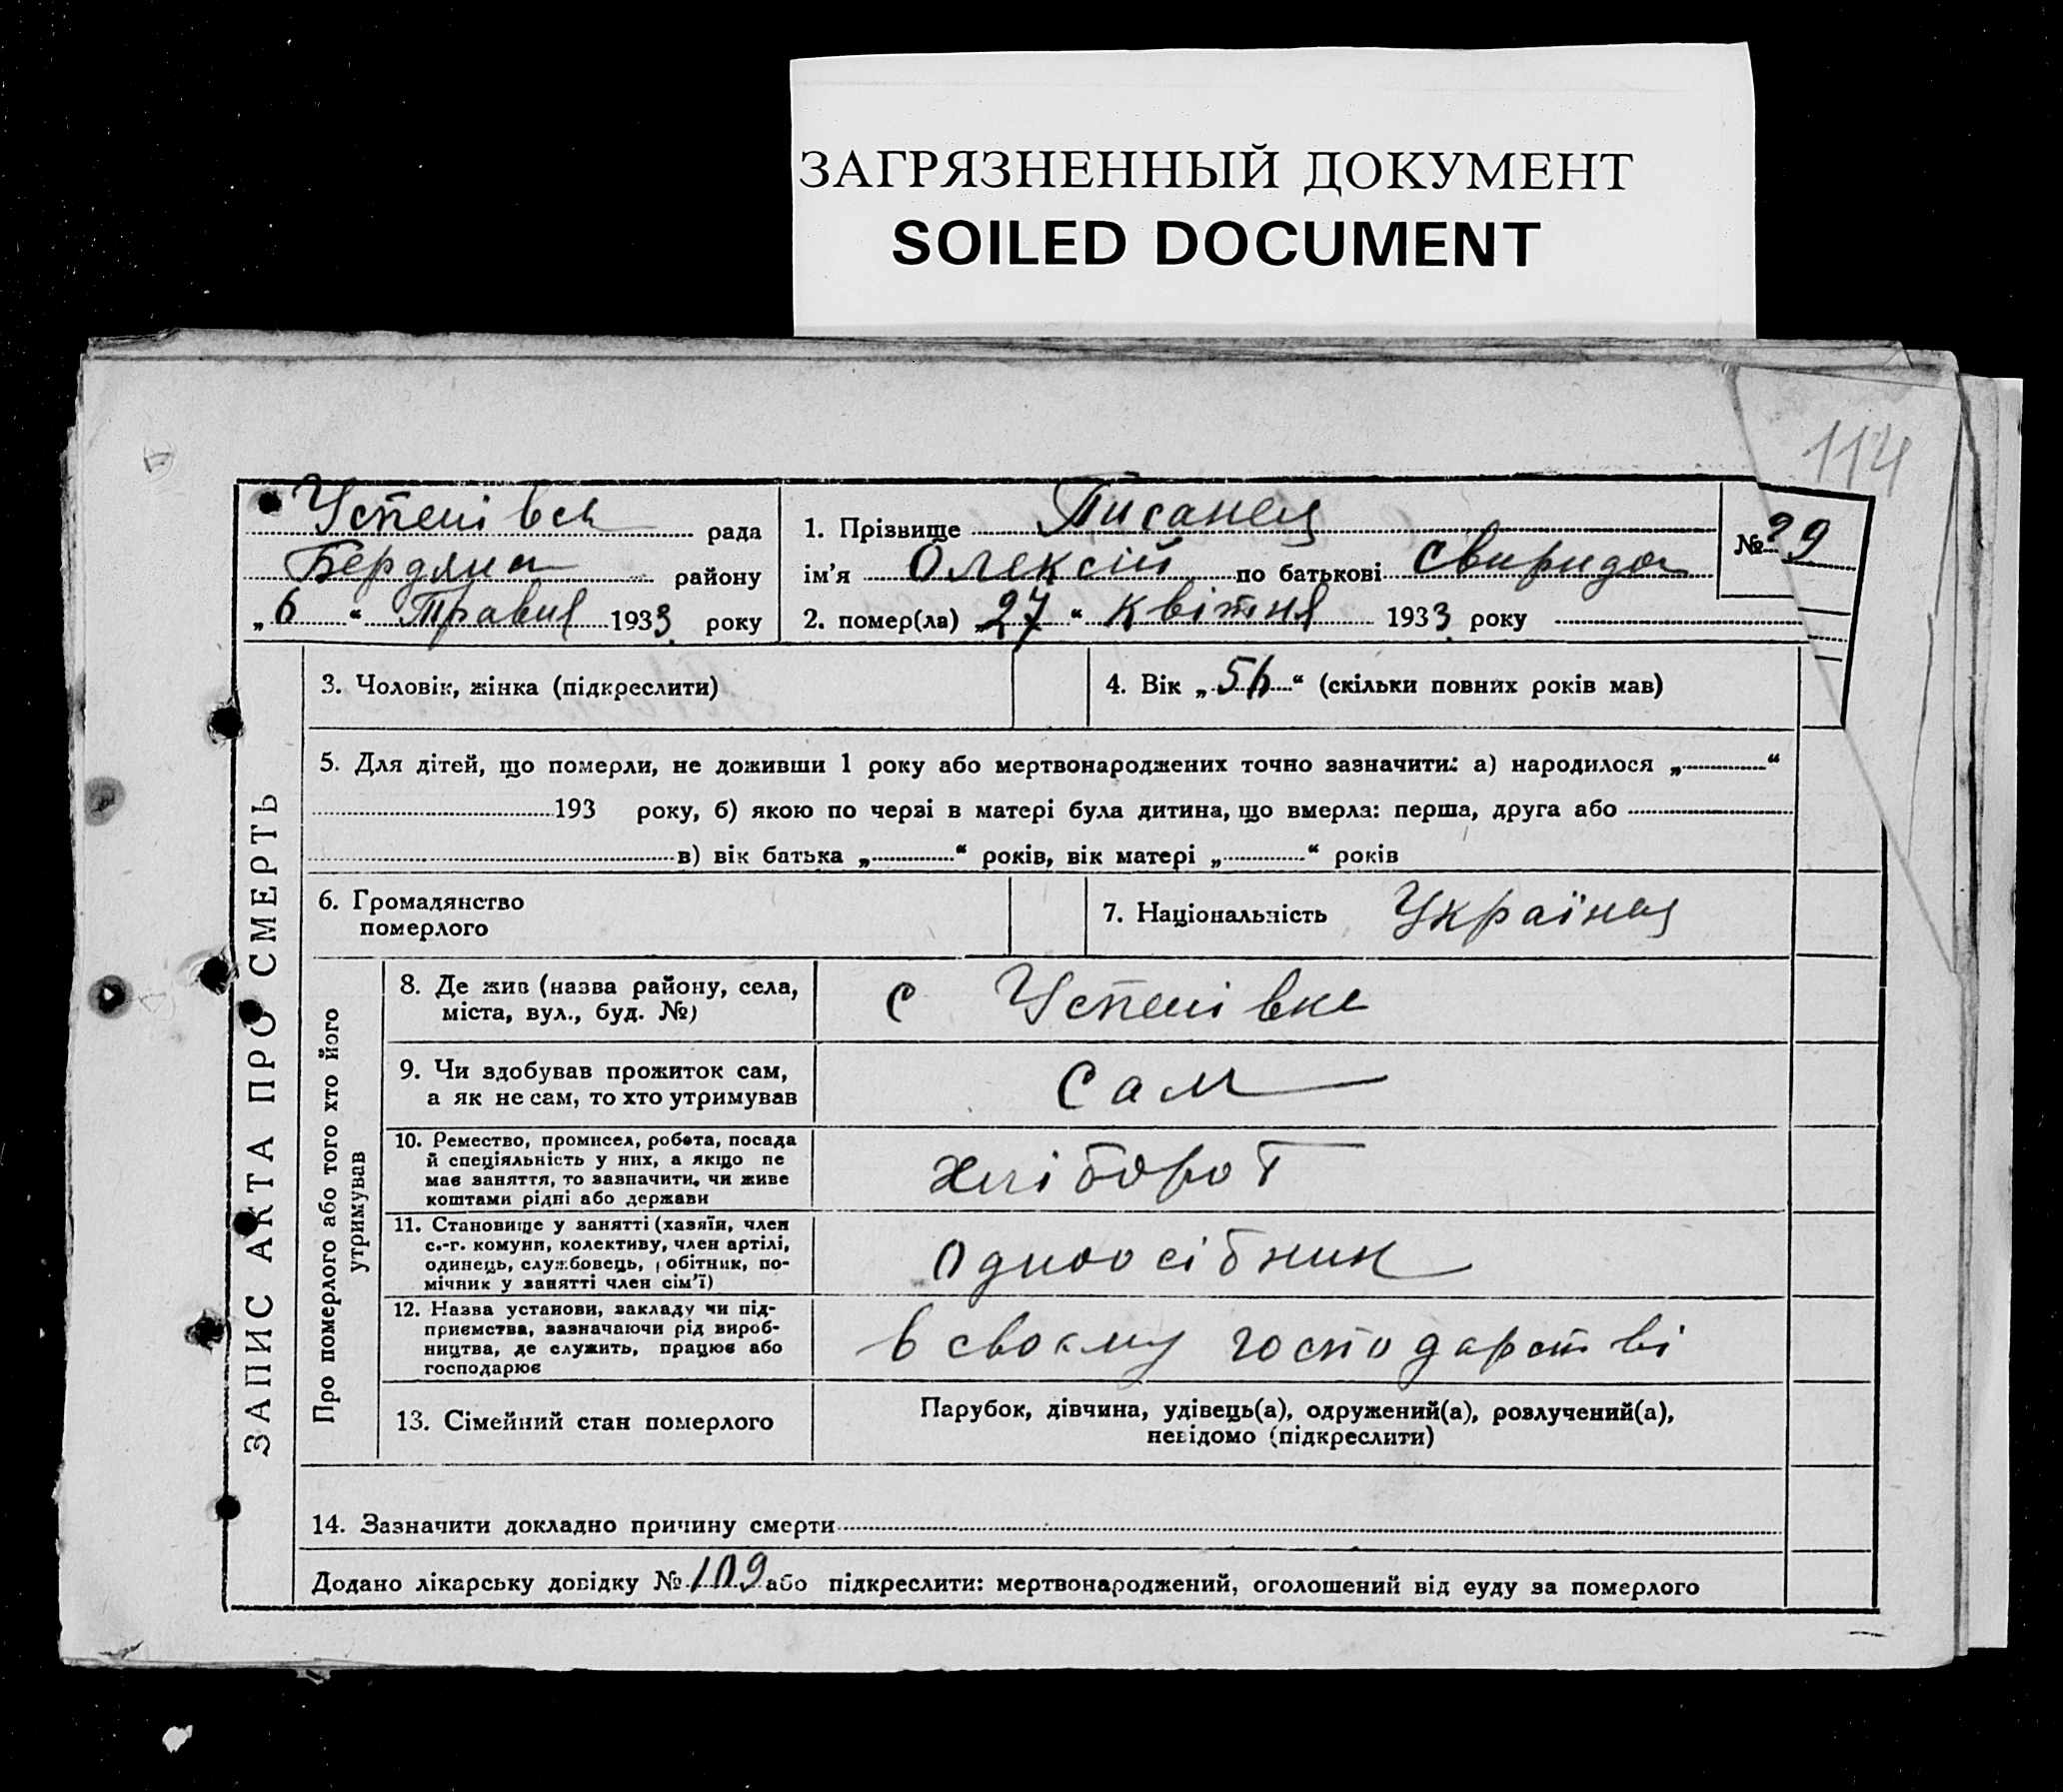 ЗАГРЯЗНЕННЫЙ ДОКУМЕНТ
SOILED DOCUMENT
114
Успенівськ рада
Бердянск району
„6“ Травня 1933 року
1. Прізвище Писанец
ім’я Олексій по батькові Свиридов
2. помер(ла) „27“ квітня 1933 року
№ 29
ЗАПИС АКТА ПРО СМЕРТЬ
3. Чоловік, жінка (підкреслити)
4. Вік „56“ (скільки повних років мав)
5. Для дітей, що померли, не доживши 1 року або мертвонароджених точно зазначити: а) народилося „ “
193 року, б) якою по черзі в матері була дитина, що вмерла: перша, друга або
в) вік батька „ “ років, вік матері „ “ років
6. Громадянство
померлого
7. Національність Українец
Про померлого або того хто його
утримував
8. Де жив (назва району, села,
міста, вул., буд. №)
с Успенівке
9. Чи здобував прожиток сам,
а як не сам, то хто утримував
сам
10. Ремество, промисел, робота, посада
й спеціяльність у них, а якщо не
має заняття, то зазначити, чи живе
коштами рідні або держави
хлібороб
11. Становище у занятті (хазяїн, член
с.-г. комуни, колективу, член артілі,
одинець, службовець, робітник, по-
мічник у занятті член сім’ї)
одноосібник
12. Назва установи, закладу чи під-
приємства, зазначаючи рід вироб-
ництва, де служить, працює або
господарює
в своєму господарстві
13. Сімейний стан померлого
Парубок, дівчина, удівець(а), одружений(а), розлучений(а),
невідомо (підкреслити)
14. Зазначити докладно причину смерти
Додано лікарську довідку № 109 або підкреслити: мертвонароджений, оголошений від суду за померлого